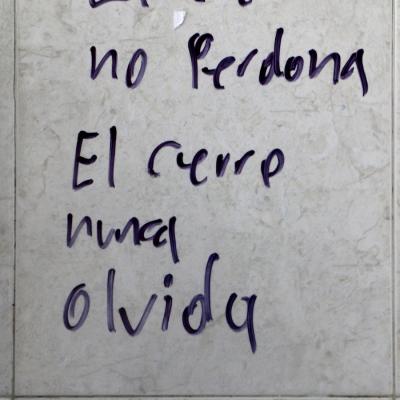 no Perdona
El cerro
nunca
olvida